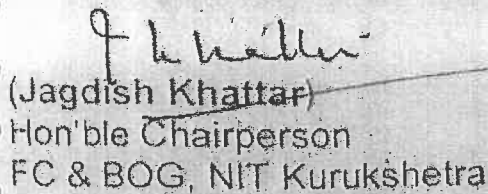 (Jagdish Khattar)
Hon'ble Chairperson
FC & BOG, NIT Kurukshetra